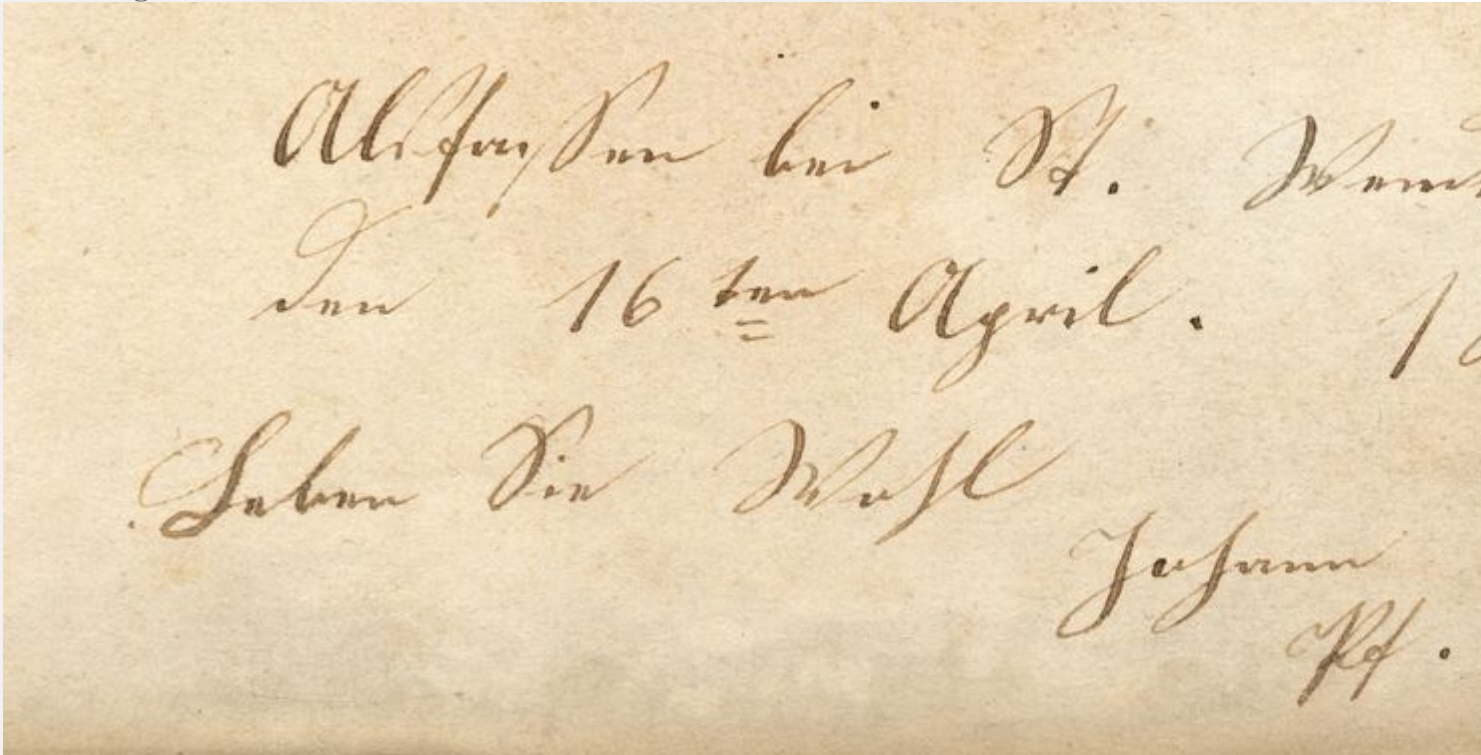 Alsfassen bei St. Wend
den 16ten April. 1
Leben Sie Wohl
Johann
Pf.